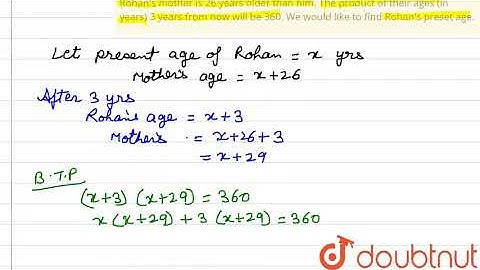 Rohan's mother is 26 years older than him. The product of their ages (in
years) 3 years from now will be 360. We would like to find Rohan's preset age.
Let present age of Rohan = x yrs
Mother's age = x+26
After 3 yrs
Rohan's age = x+3
Mother's = x+26+3
= x+29
B.T.P
(x+3) (x+29) = 360
x (x+29) + 3 (x+29) = 360
doubtnut